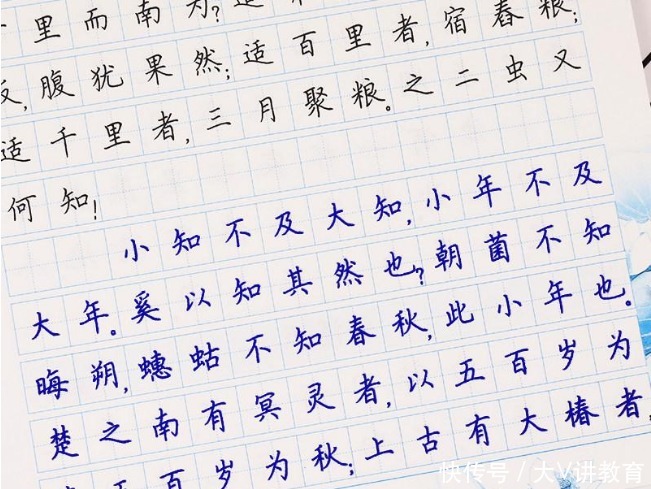 里而南为?适
反,腹犹果然;适百里者,宿舂粮;
适千里者,三月聚粮。之二虫又
何知!
小知不及大知,小年不及
大年。奚以知其然也?朝菌不知
晦朔,蟪蛄不知春秋,此小年也。
楚之南有冥灵者,以五百岁为
五百岁为秋;上古有大椿者,
快传号/大V讲教育